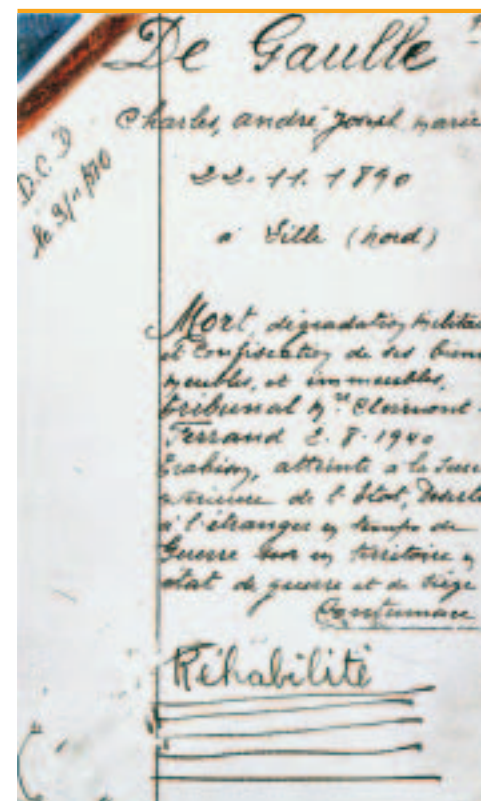 De Gaulle
Charles, andré, Josef, marie
22. 11. 1890
a Lille (nord)
D.C.D
le 9/11 1970
Mort, dégradation militai
et Confiscation de ses bien
meubles, et immeubles,
tribunal Mre Clermont-
Ferrand 2. 8. 1940
trahison, atteinte a la sure
exterieure de l'Etat, Deserti
à l'étranger en temps de
Guerre sur un territoire en
état de guerre et de siège
Contumace
Réhabilité